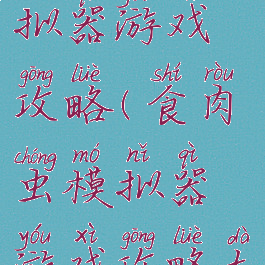 拟器游戏
gōng lüè shí ròu
攻略(食肉
chóng mó nǐ qì
虫模拟器
yóu xì gōng lüè dà
游戏攻略大